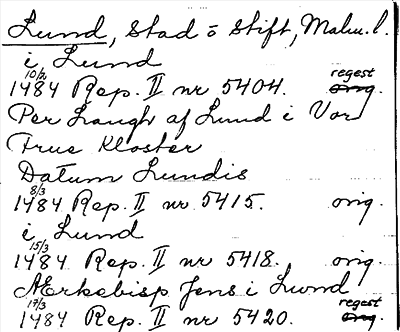 Lund, Stad o Stift, Malm. l.
i Lund
10/2 1484 Rep. II nr 5404. regest orig.
Per Laugh af Lund i Vor
Frue Kloster
Datum Lundis
8/3 1484 Rep. II nr 5415. orig.
i Lund
15/3 1484 Rep. II nr 5418. orig.
Ærkebisp Jens i Lund
17/3 1484 Rep. II nr 5420. regest orig.